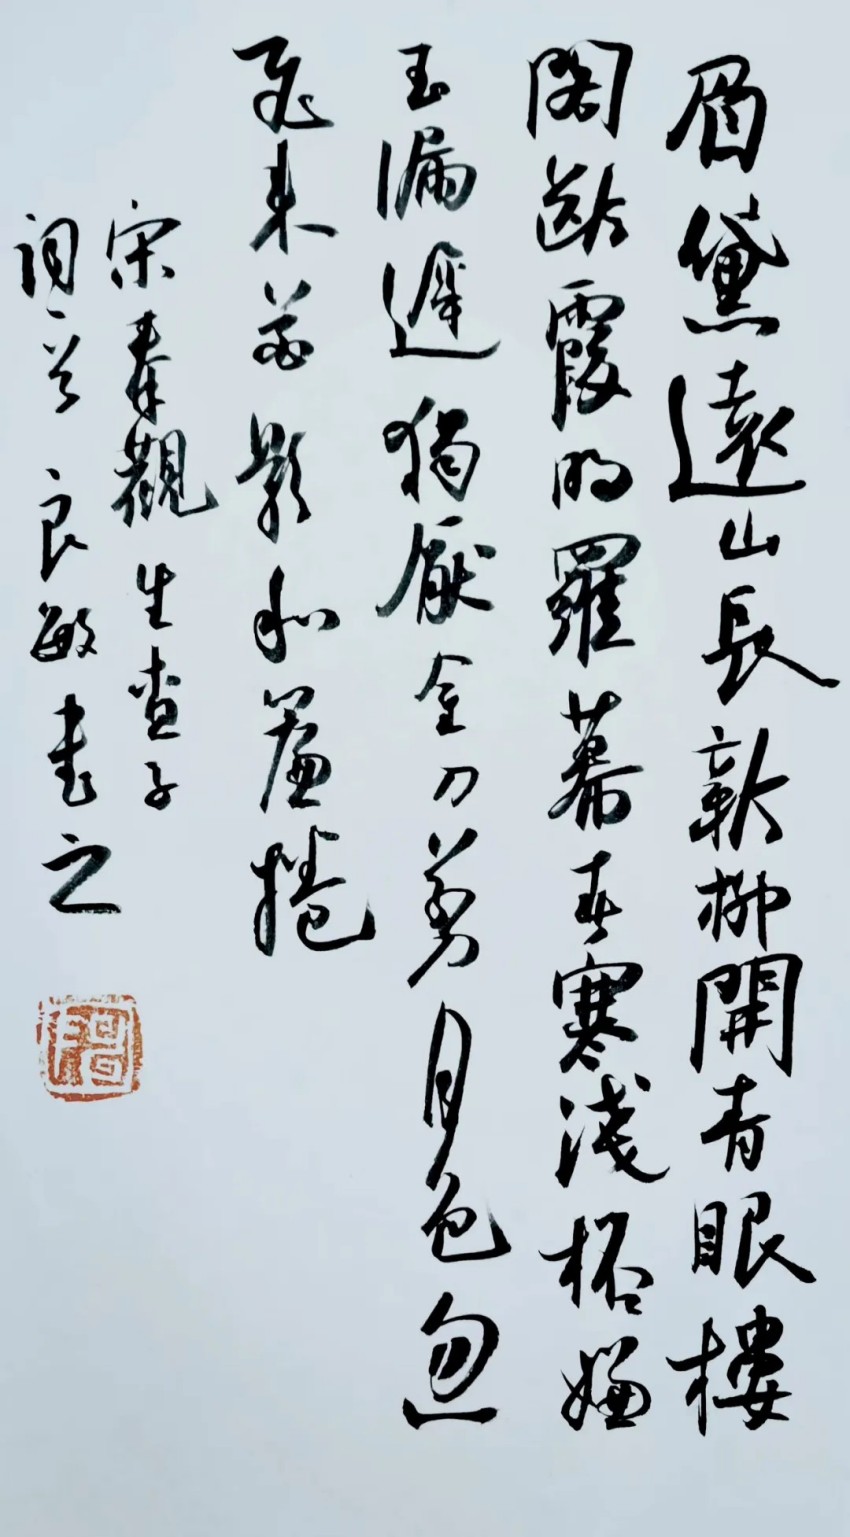 眉黛遠山長新柳開青眼樓
閣斷霞明羅幕春寒淺桮嫌
玉漏遲燭厭金刀剪月色忽
飛來花影和簾捲
宋秦觀生查子
詞一首 良敏書之